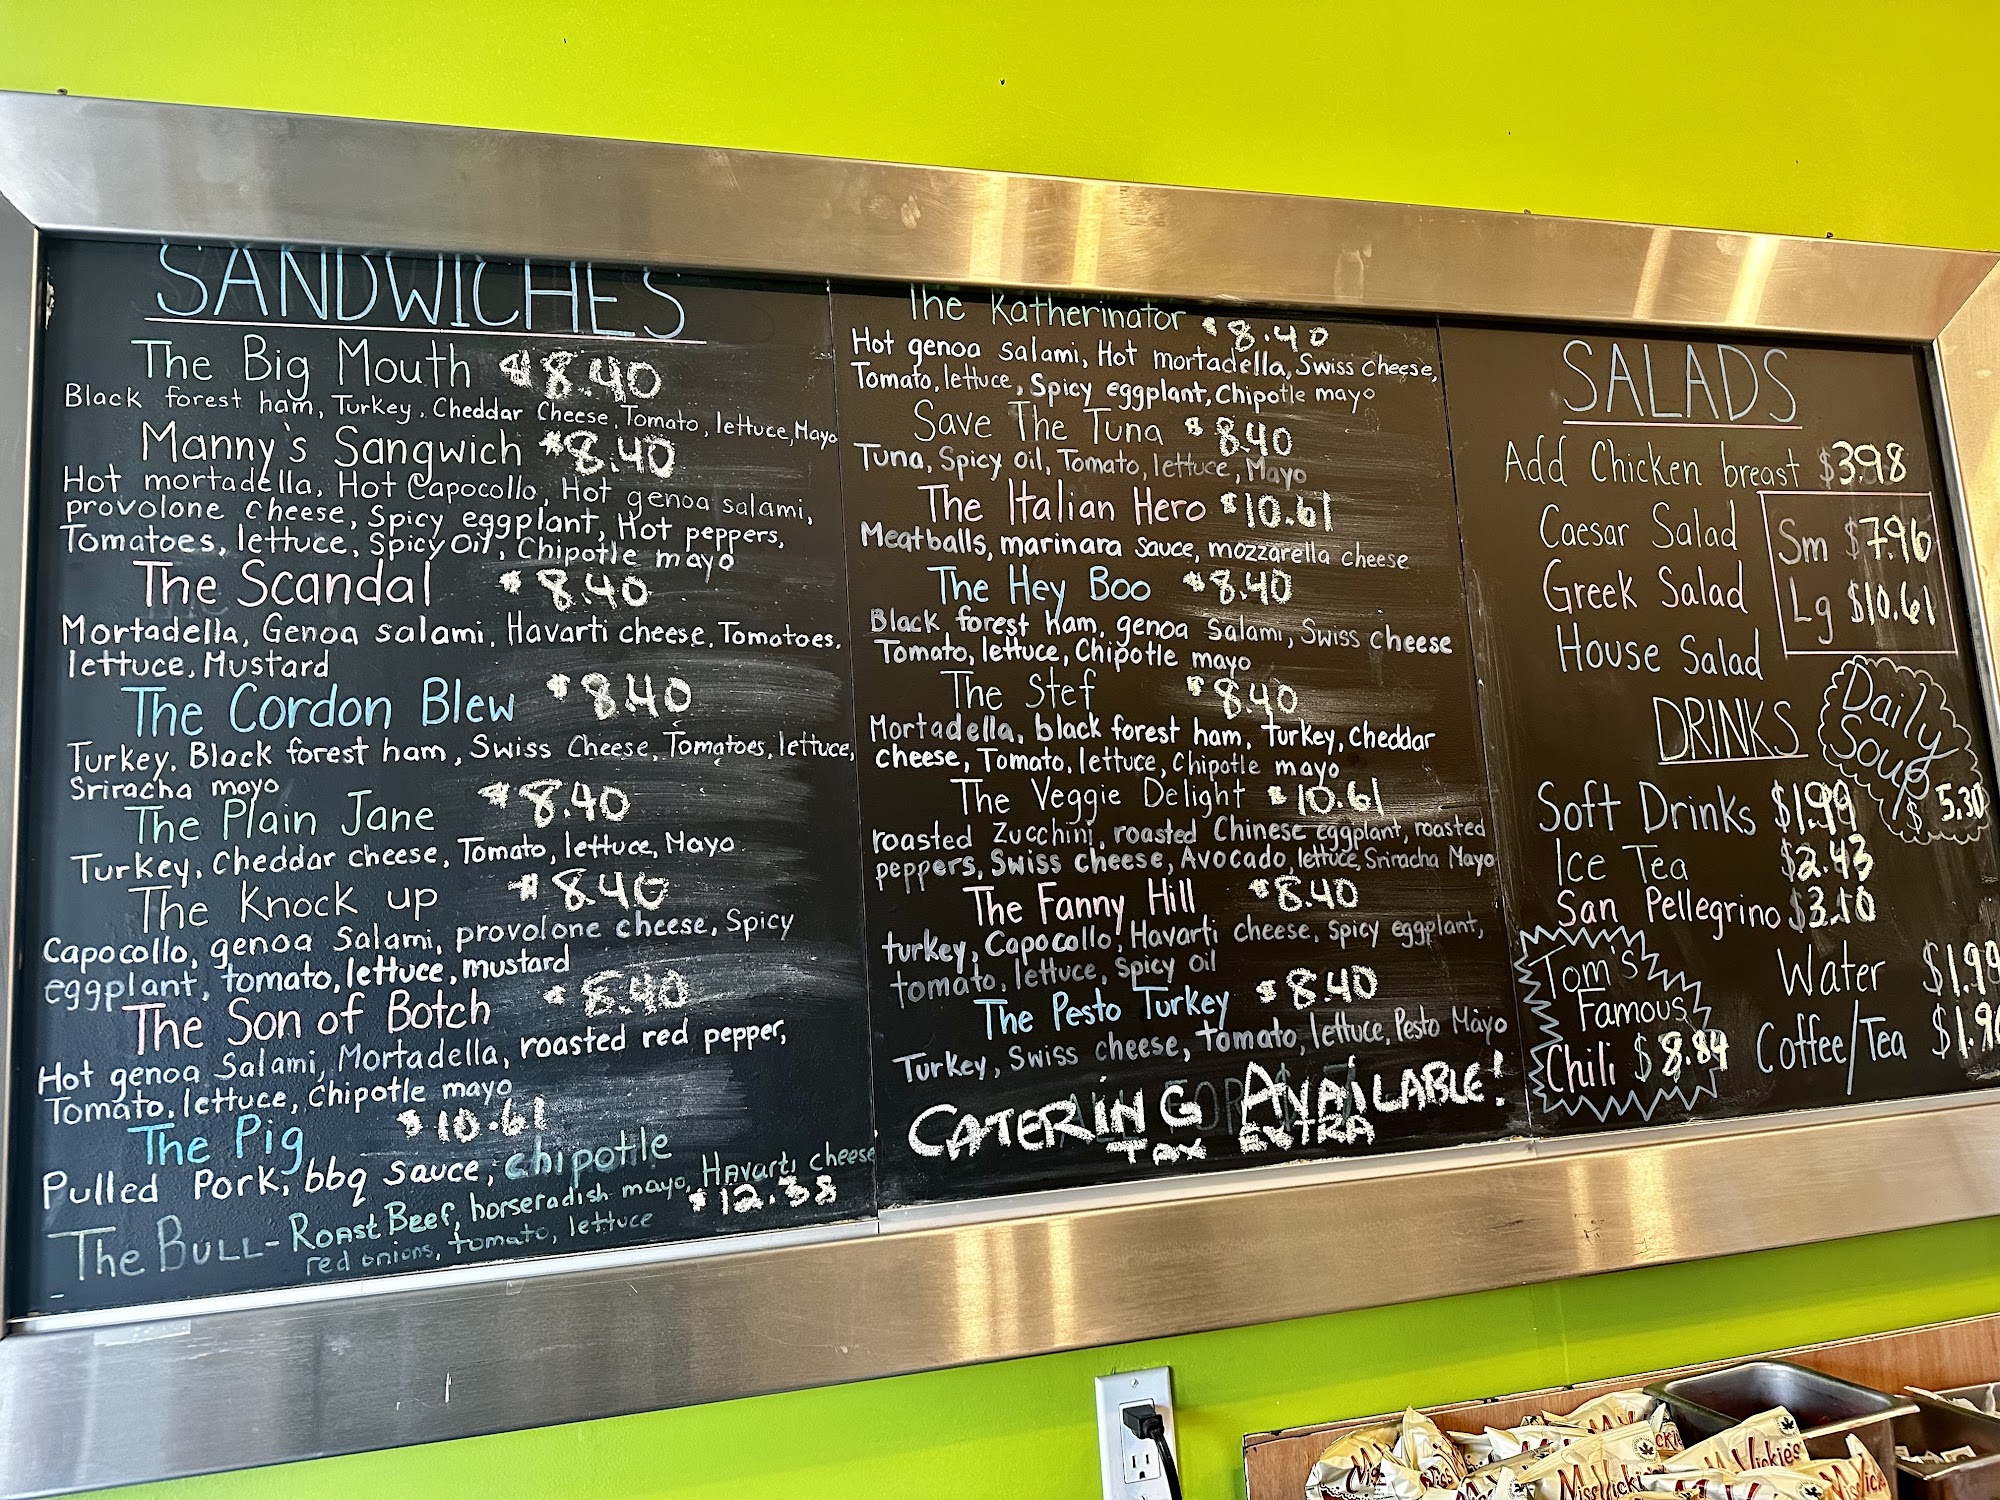 SANDWICHES
The Big Mouth $8.40
Black forest ham, Turkey, Cheddar Cheese, Tomato, lettuce, Mayo
Manny's Sangwich $8.40
Hot mortadella, Hot Capocollo, Hot genoa salami,
provolone cheese, Spicy eggplant, Hot peppers,
Tomatoes, lettuce, Spicy Oil, Chipotle mayo
The Scandal $8.40
Mortadella, Genoa salami, Havarti cheese, Tomatoes,
lettuce, Mustard
The Cordon Blew $8.40
Turkey, Black forest ham, Swiss Cheese, Tomatoes, lettuce,
Sriracha mayo
The Plain Jane $8.40
Turkey, Cheddar cheese, Tomato, lettuce, Mayo
The Knock up $8.40
Capocollo, genoa Salami, provolone cheese, Spicy
eggplant, tomato, lettuce, mustard
The Son of Botch $8.40
Hot genoa Salami, Mortadella, roasted red pepper,
Tomato, lettuce, Chipotle mayo
The Pig $10.61
Pulled Pork, bbq sauce, chipotle
The BULL- Roast Beef, horseradish mayo, Havarti cheese
red onions, tomato, lettuce $12.38
The Katherinator $8.40
Hot genoa salami, Hot mortadella, Swiss cheese,
Tomato, lettuce, Spicy eggplant, Chipotle mayo
Save The Tuna $8.40
Tuna, Spicy Oil, Tomato, lettuce, Mayo
The Italian Hero $10.61
Meatballs, marinara sauce, mozzarella cheese
The Hey Boo $8.40
Black forest ham, genoa Salami, Swiss cheese
Tomato, lettuce, Chipotle mayo
The Stef $8.40
Mortadella, black forest ham, Turkey, Cheddar
cheese, Tomato, lettuce, Chipotle mayo
The Veggie Delight $10.61
roasted Zucchini, roasted Chinese eggplant, roasted
peppers, Swiss cheese, Avocado, lettuce, Sriracha Mayo
The Fanny Hill $8.40
turkey, Capocollo, Havarti cheese, spicy eggplant,
tomato, lettuce, Spicy Oil
The Pesto Turkey $8.40
Turkey, Swiss cheese, Tomato, lettuce, Pesto Mayo
CATERING AVAILABLE!
TAX EXTRA
SALADS
Add Chicken breast $3.98
Caesar Salad
Greek Salad
House Salad
Sm $7.96
Lg $10.61
DRINKS
Daily
Soup
$5.30
Soft Drinks $1.99
Ice Tea $2.43
San Pellegrino $3.10
Water $1.99
Coffee/Tea $1.9
Tom's
Famous
Chili $8.84
Miss Vickie's